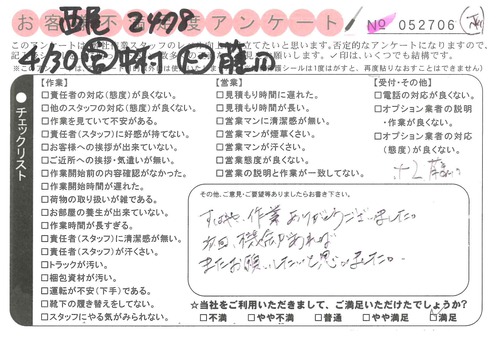 お客様不満足度アンケート
西尾 2498
No 052706
4/30
□責任者の対応(態度)が良くない。
□他のスタッフの対応(態度)が良くない。
□作業を見ていて不安がある。
□責任者(スタッフ)に好感が持てない。
□お客様への挨拶が出来ていない。
□ご近所への挨拶・気遣いが無い。
□作業開始前の内容確認がなかった。
□作業開始時間が遅れた。
□荷物の取り扱いが雑である。
□お部屋の養生が出来ていない。
□作業時間が長すぎる。
□責任者(スタッフ)に清潔感が無い。
□責任者(スタッフ)が汗くさい。
□トラックが汚い。
□梱包資材が汚い。
□運転が不安(下手)である。
□靴下の履き替えをしてない。
□スタッフにやる気がみられない。
チェックリスト
【作業】
【営業】
□見積もり時間に遅れた。
□見積もり時間が長い。
□営業マンに清潔感が無い。
□営業マンが煙草くさい。
□営業マンが汗くさい。
□営業態度が良くない。
□営業の説明と作業が一致してない。
【受付・その他】
□電話の対応が良くない。
□オプション業者の説明
・作業が良くない。
□オプション業者の対応
(態度)が良くない。
その他、ご意見・ご要望等ありましたらお書き下さい。
すばやい作業ありがとうございました。
次回、機会があれば
またお願いしたいと思いました。
☆当社をご利用いただきまして、ご満足いただけたでしょうか?
□不満 □やや不満 □普通 □やや満足 □満足